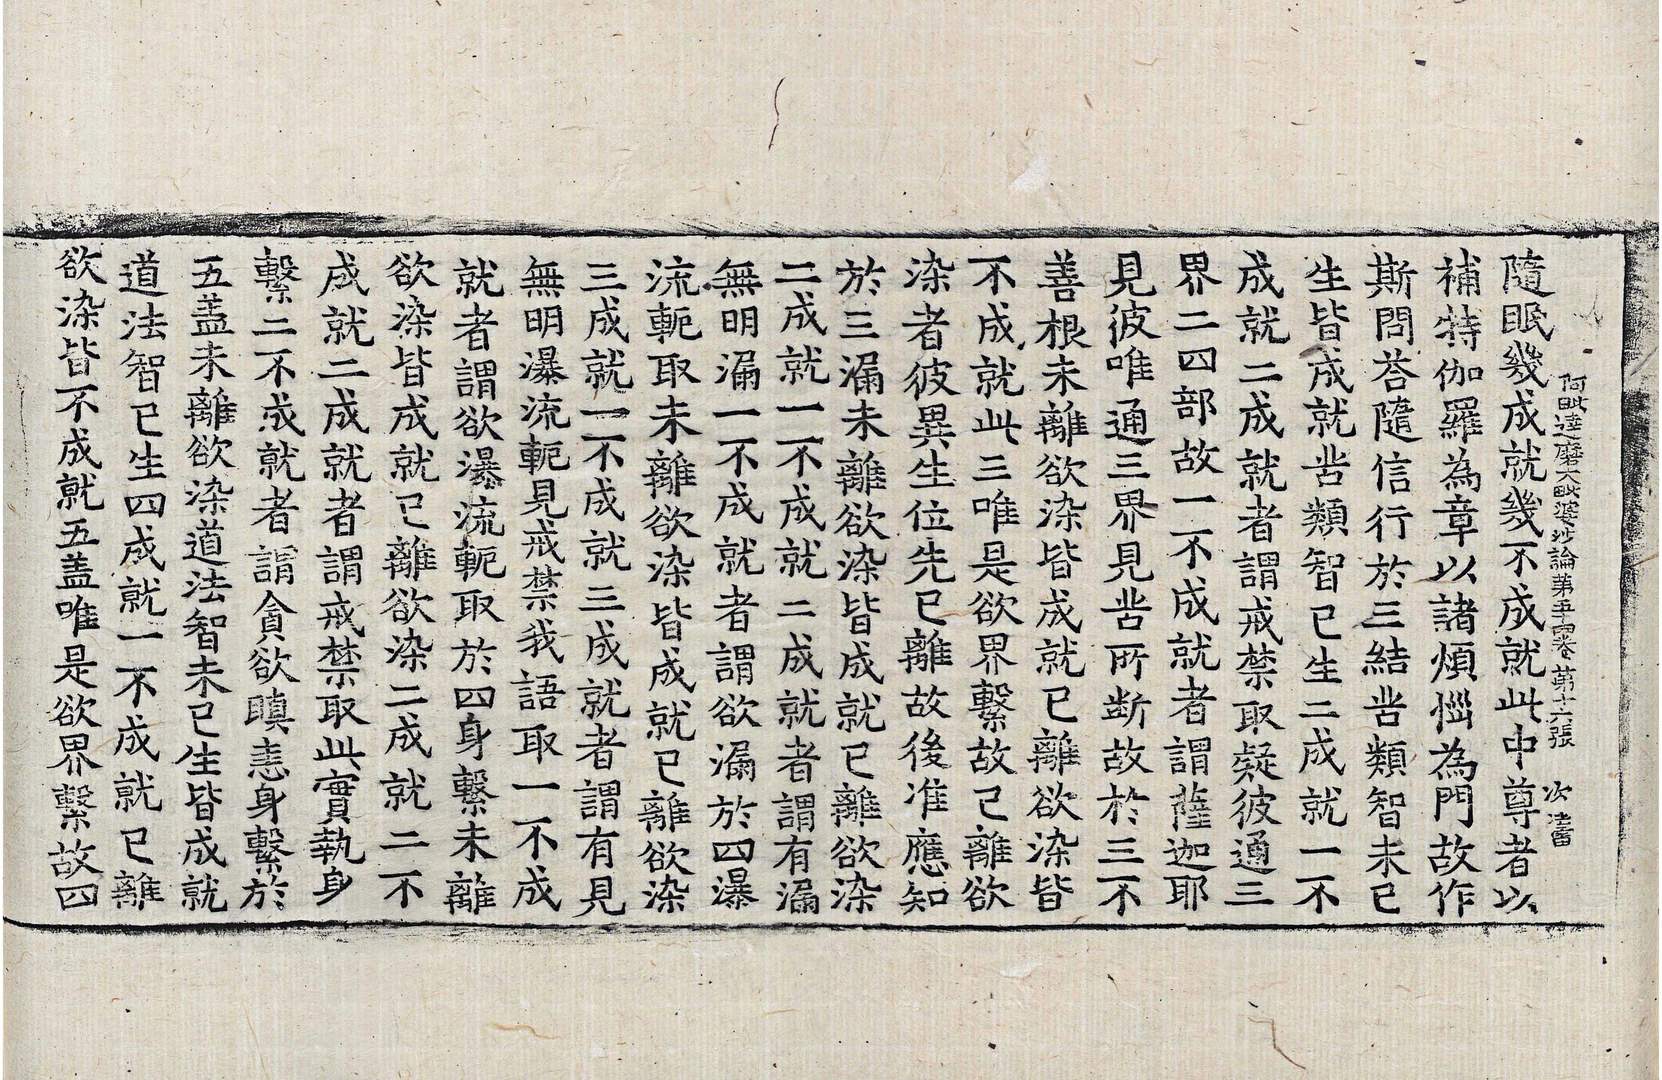 阿毗達磨大毗婆沙論第五十四卷 第十六張 次
隨眠幾成就幾不成就此中尊者以
補特伽羅為章以諸煩惱為門故作
斯問荅隨信行於三結苦類智未已
生皆成就苦類智已生二成就一不
成就二成就者謂戒禁取疑彼通三
界二四部故一不成就者謂薩迦耶
見彼唯通三界見苦所斷故於三不
善根未離欲染皆成就已離欲染皆
不成就此三唯是欲界繫故已離欲
染者彼異生位先已離故後准應知
於三漏未離欲染皆成就已離欲染
二成就一不成就二成就者謂有漏
無明漏一不成就者謂欲漏於四瀑
流軛取未離欲染皆成就已離欲染
三成就一不成就三成就者謂有見
無明瀑流軛見戒禁我語取一不成
就者謂欲瀑流軛取於四身繫未離
欲染皆成就已離欲染二成就二不
成就二成就者謂戒禁取此實執身
繫二不成就者謂貪欲瞋恚身繫於
五盖未離欲染道法智未已生皆成就
道法智已生四成就一不成就已離
欲染皆不成就五盖唯是欲界繫故四